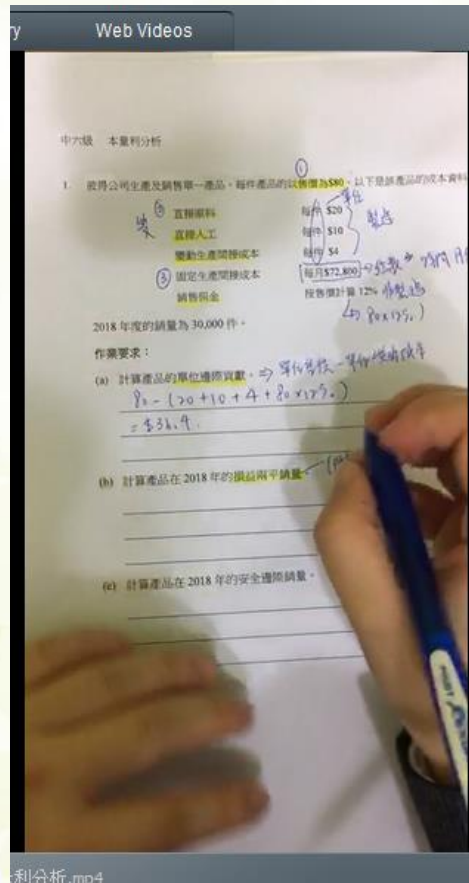 Web Videos
中六級 本量利分析
1. 彼得公司生產及銷售單一產品，每件產品的以售價為$80，以下是該產品的成本資料
① 
② 直接原料 每件 $20 單位
直接人工 每件 $10 製造
變動生產間接成本 每件 $4
③ 固定生產間接成本 每月$72,800 → 總數 → 時間
銷售佣金 按售價計算 12% 非製造
↳ 80x12%)
2018 年度的銷量為 30,000 件。
作業要求：
(a) 計算產品的單位邊際貢獻。⇒ 單位售價 - 單位變動成本
80 - (20 + 10 + 4 + 80 x 12%)
= $36.4.
(b) 計算產品在 2018 年的損益兩平銷量。
(c) 計算產品在 2018 年的安全邊際銷量。
利分析.mp4